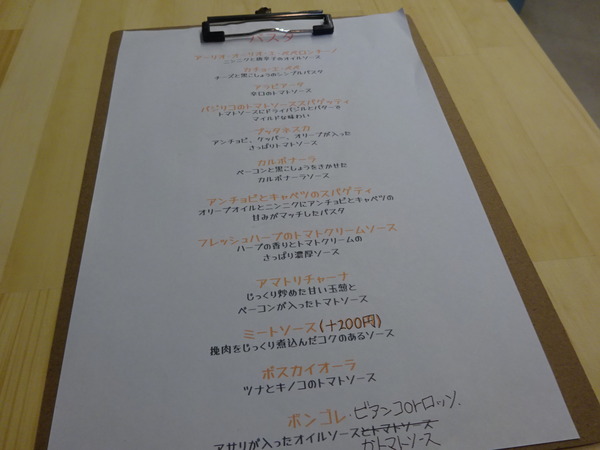 パスタ
アーリオ・オーリオ・エ・ペペロンチーノ
ニンニクと唐辛子のオイルソース
カチョ・エ・ペペ
チーズと黒こしょうのシンプルパスタ
アラビアータ
辛口のトマトソース
バジリコのトマトソーススパゲッティ
トマトソースにドライバジルとバターを
マイルドな味わい
プッタネスカ
アンチョビ、ケッパー、オリーブが入った
さっぱりトマトソース
カルボナーラ
ベーコンと黒こしょうをきかせた
カルボナーラソース
アンチョビとキャベツのスパゲティ
オリーブオイルとニンニクにアンチョビとキャベツの
甘みがマッチしたパスタ
フレッシュハーブのトマトクリームソース
ハーブの香りとトマトクリームの
さっぱり濃厚ソース
アマトリチャーナ
じっくり炒めた甘い玉葱と
ベーコンが入ったトマトソース
ミートソース(+200円)
挽肉をじっくり煮込んだコクのあるソース
ボスカイオーラ
ツナとキノコのトマトソース
ボンゴレ・ビアンコorロッソ.
アサリが入ったオイルソースとトマトソース
かトマトソース